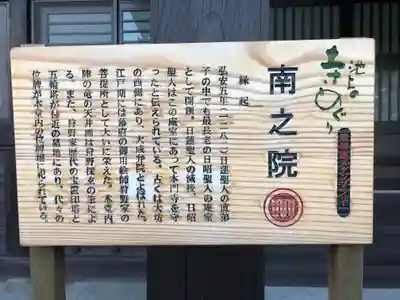 池上
まちめぐり
南之院
縁起
弘安五年(一二八二)日蓮聖人の直弟
子の中でも最長老の日昭聖人の庵室
として開創。日蓮聖人の滅後、日昭
聖人はこの庵室にあって本門寺を守
ったと伝えられている。古くは大坊
の西隣にあり、大成弁院とよばれた。
江戸期には幕府の御用絵師狩野家の
菩提所として大いに栄えた。本堂内
陣の竜の天井画は狩野探玄の筆によ
る。また、狩野家歴代の宝篋印塔と
五輪塔が付近の墓地にあり、代々の
位牌が本堂内の位牌壇に祀られている。